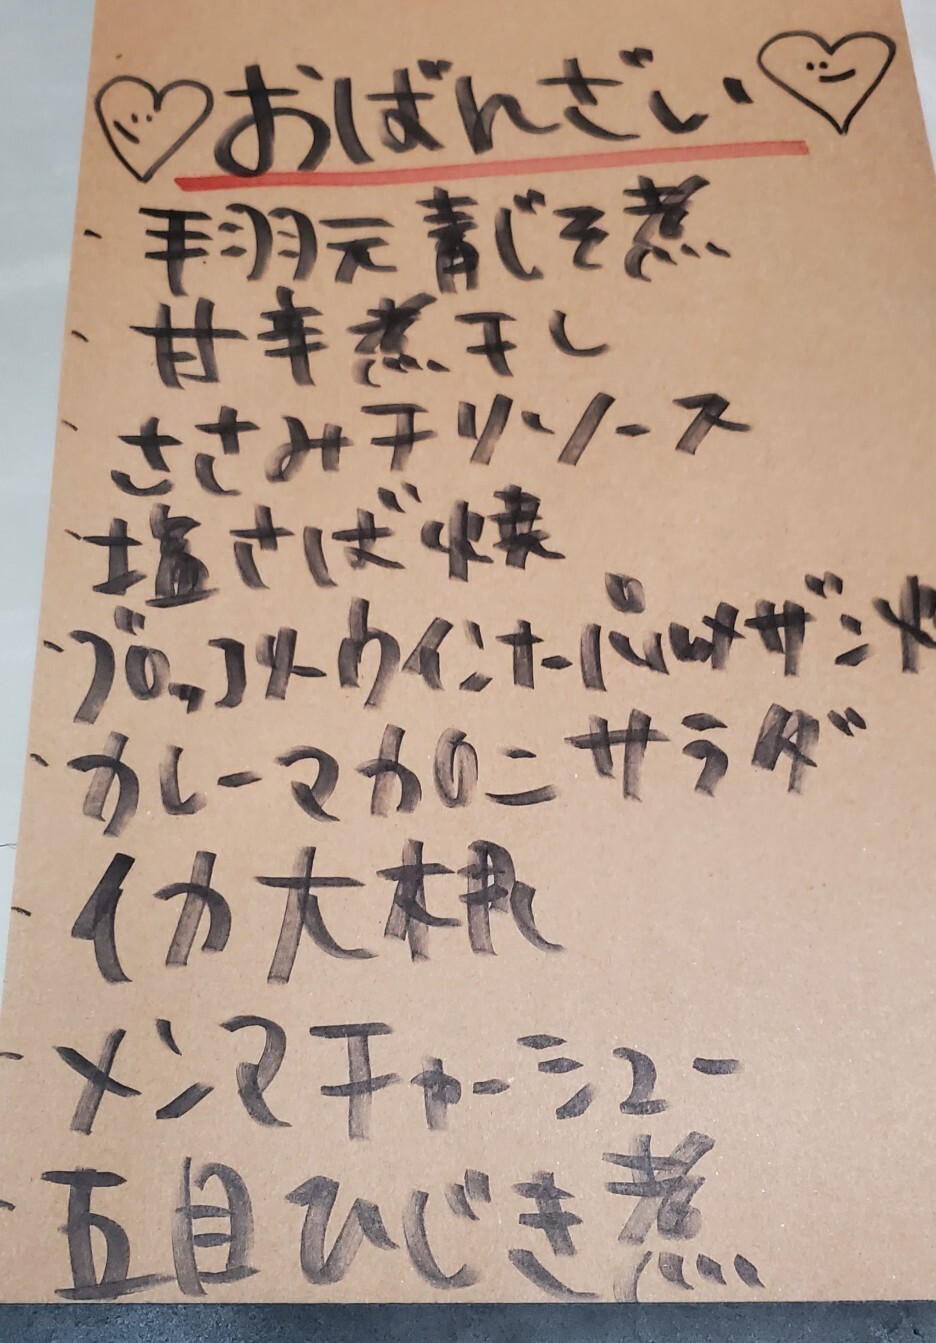 おばんざい
・手羽元青じそ煮
・甘辛煮干し
・ささみチリソース
・塩さば焼
・ブロッコリーウインナーパルメザン焼
・カレーマカロニサラダ
・イカ大根
・メンマチャーシュー
・五目ひじき煮